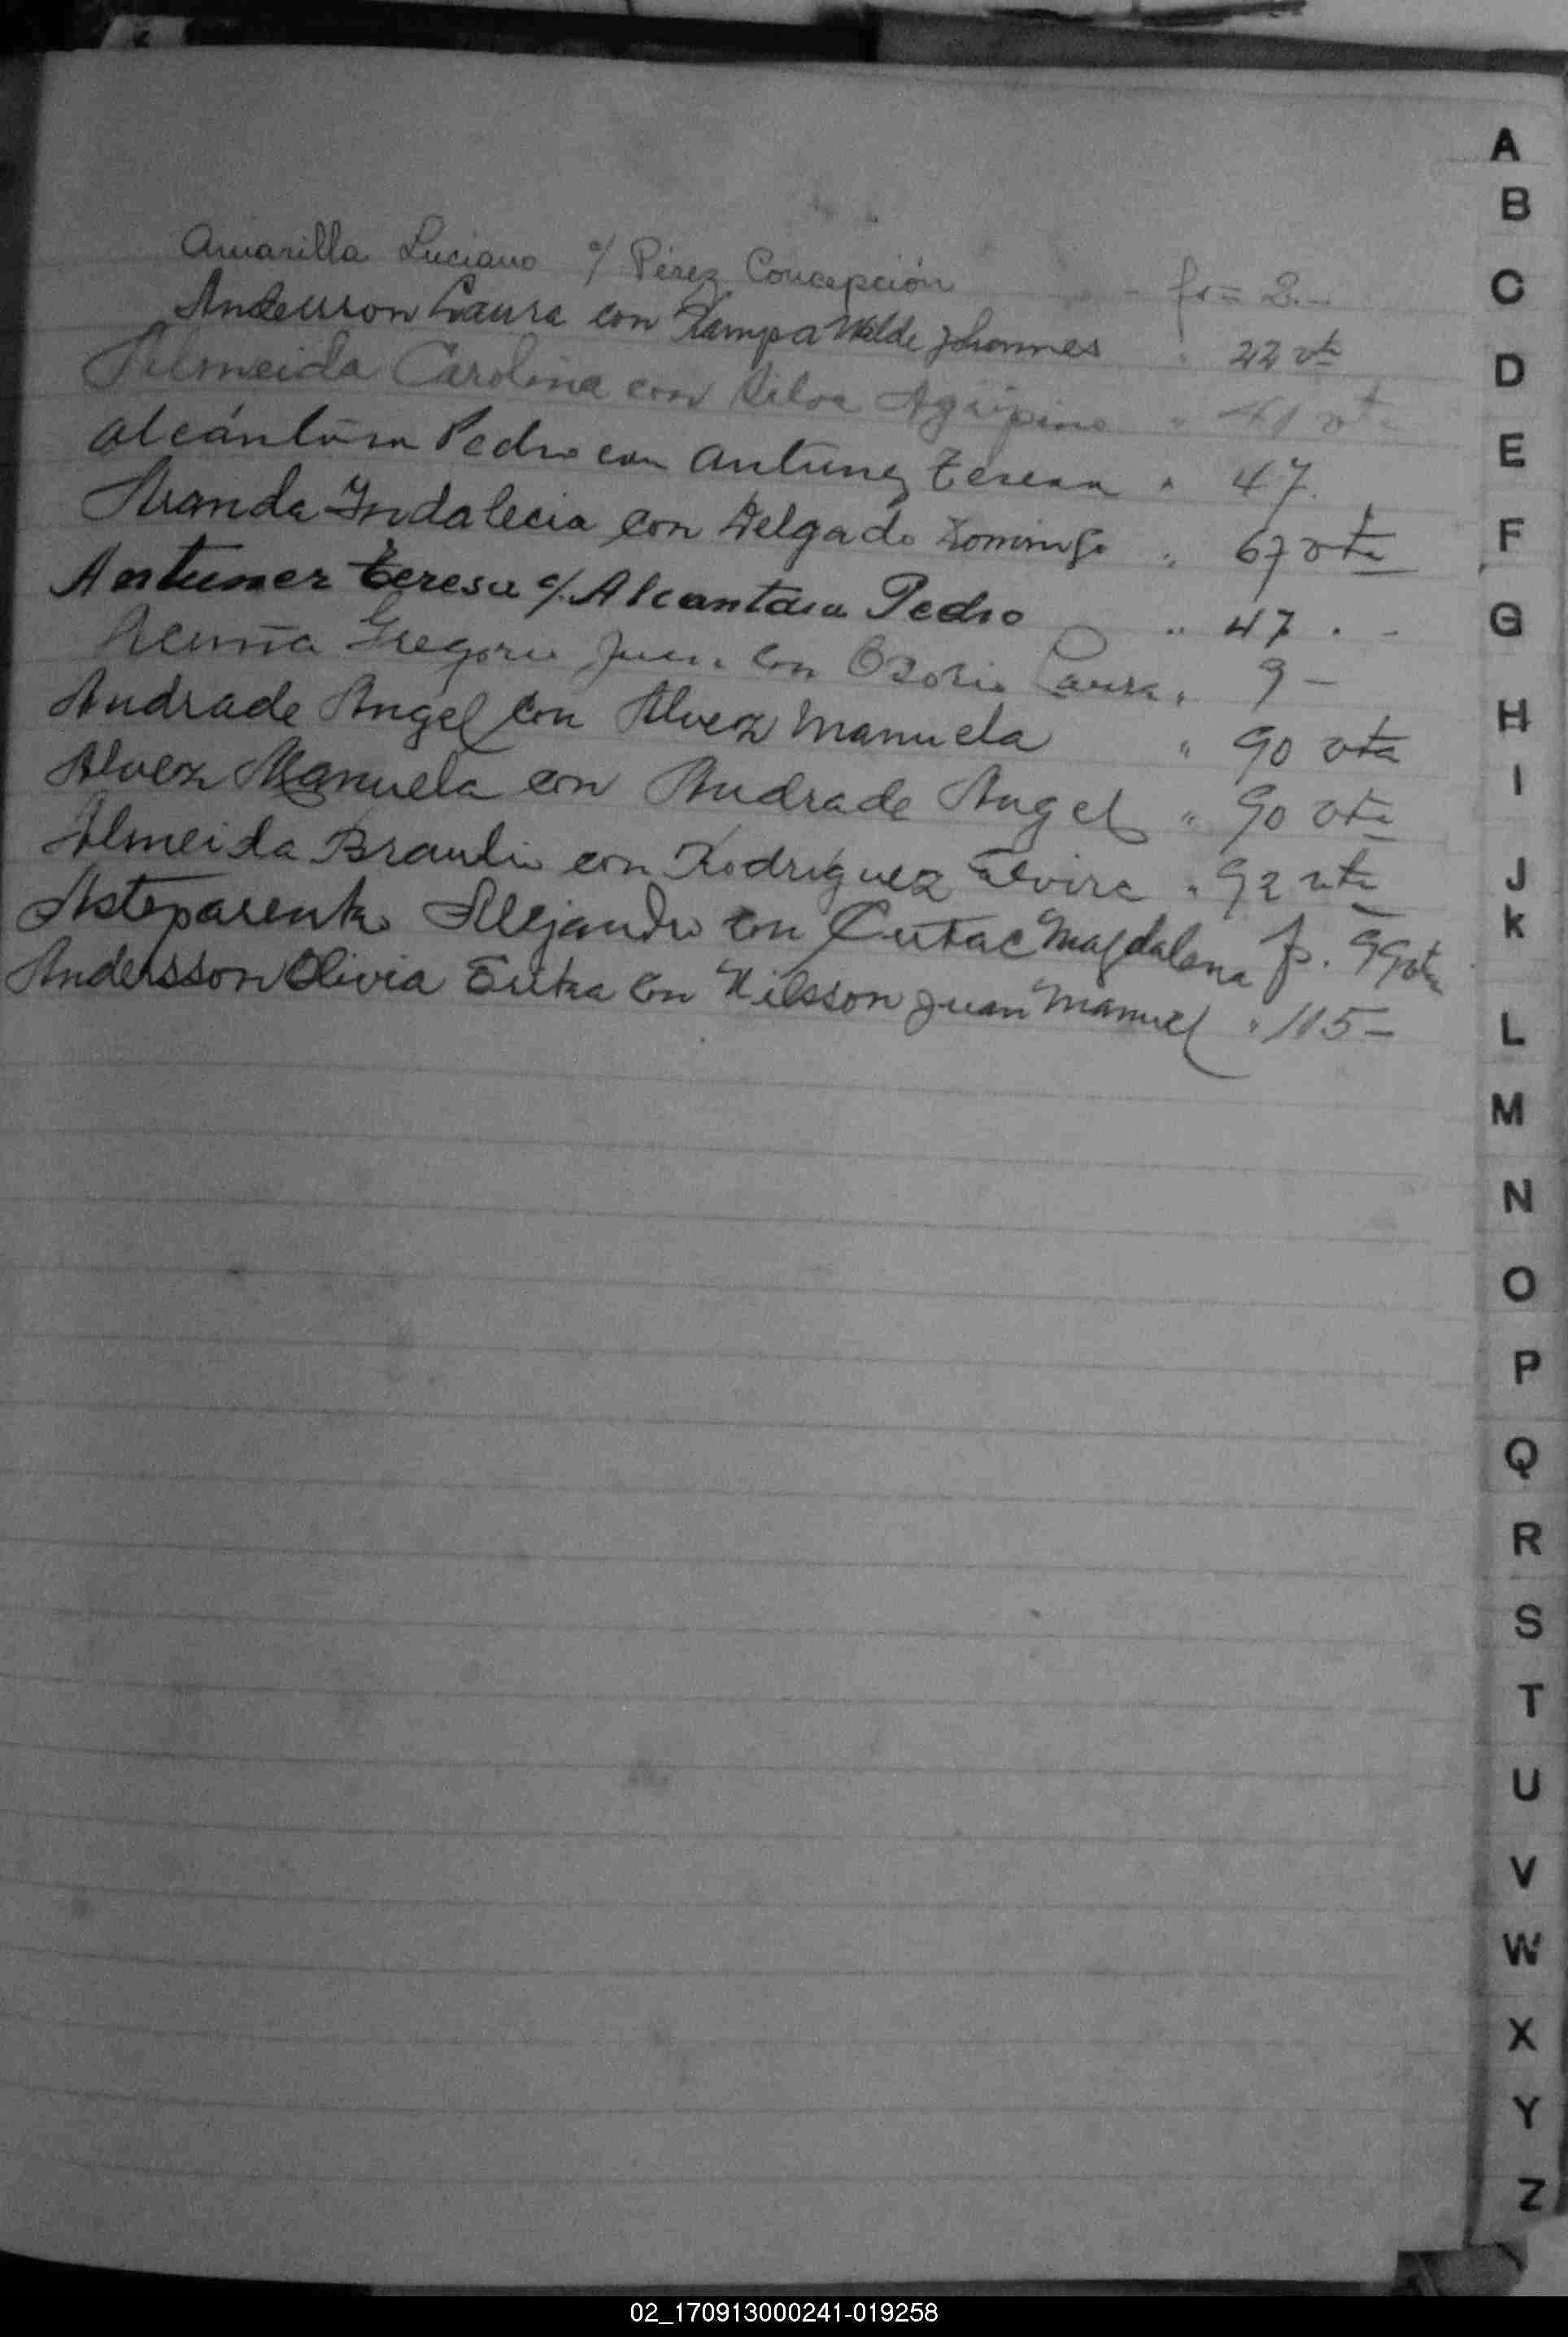 Amarilla Luciano c/ Pérez Concepción - fs= 2.-
Andersson Laura con Kampa Walde Jhonnes " 22 vta
Almeida Carolina con Silva Agripino " 41 vta
Alcántara Pedro con Antunez Teresa " 47.
Aranda Indalecia con Delgado Domingo " 67 vta
Antunez Teresa c/. Alcantara Pedro " 47. -
Acuña Gregorio Juan con Osorio Laura " 9 -
Andrade Angel con Alvez Manuela " 90 vta
Alvez Manuela con Andrade Angel " 90 vta
Almeida Braulio con Rodriguez Elvira " 92 vta
Alejandro con Magdalena f. 99 vta
Andersson Olivia Erika con Nilsson Juan Manuel " 115 -
A
B
C
D
E
F
G
H
I
J
K
L
M
N
O
P
Q
R
S
T
U
V
W
X
Y
Z
02_170913000241-019258